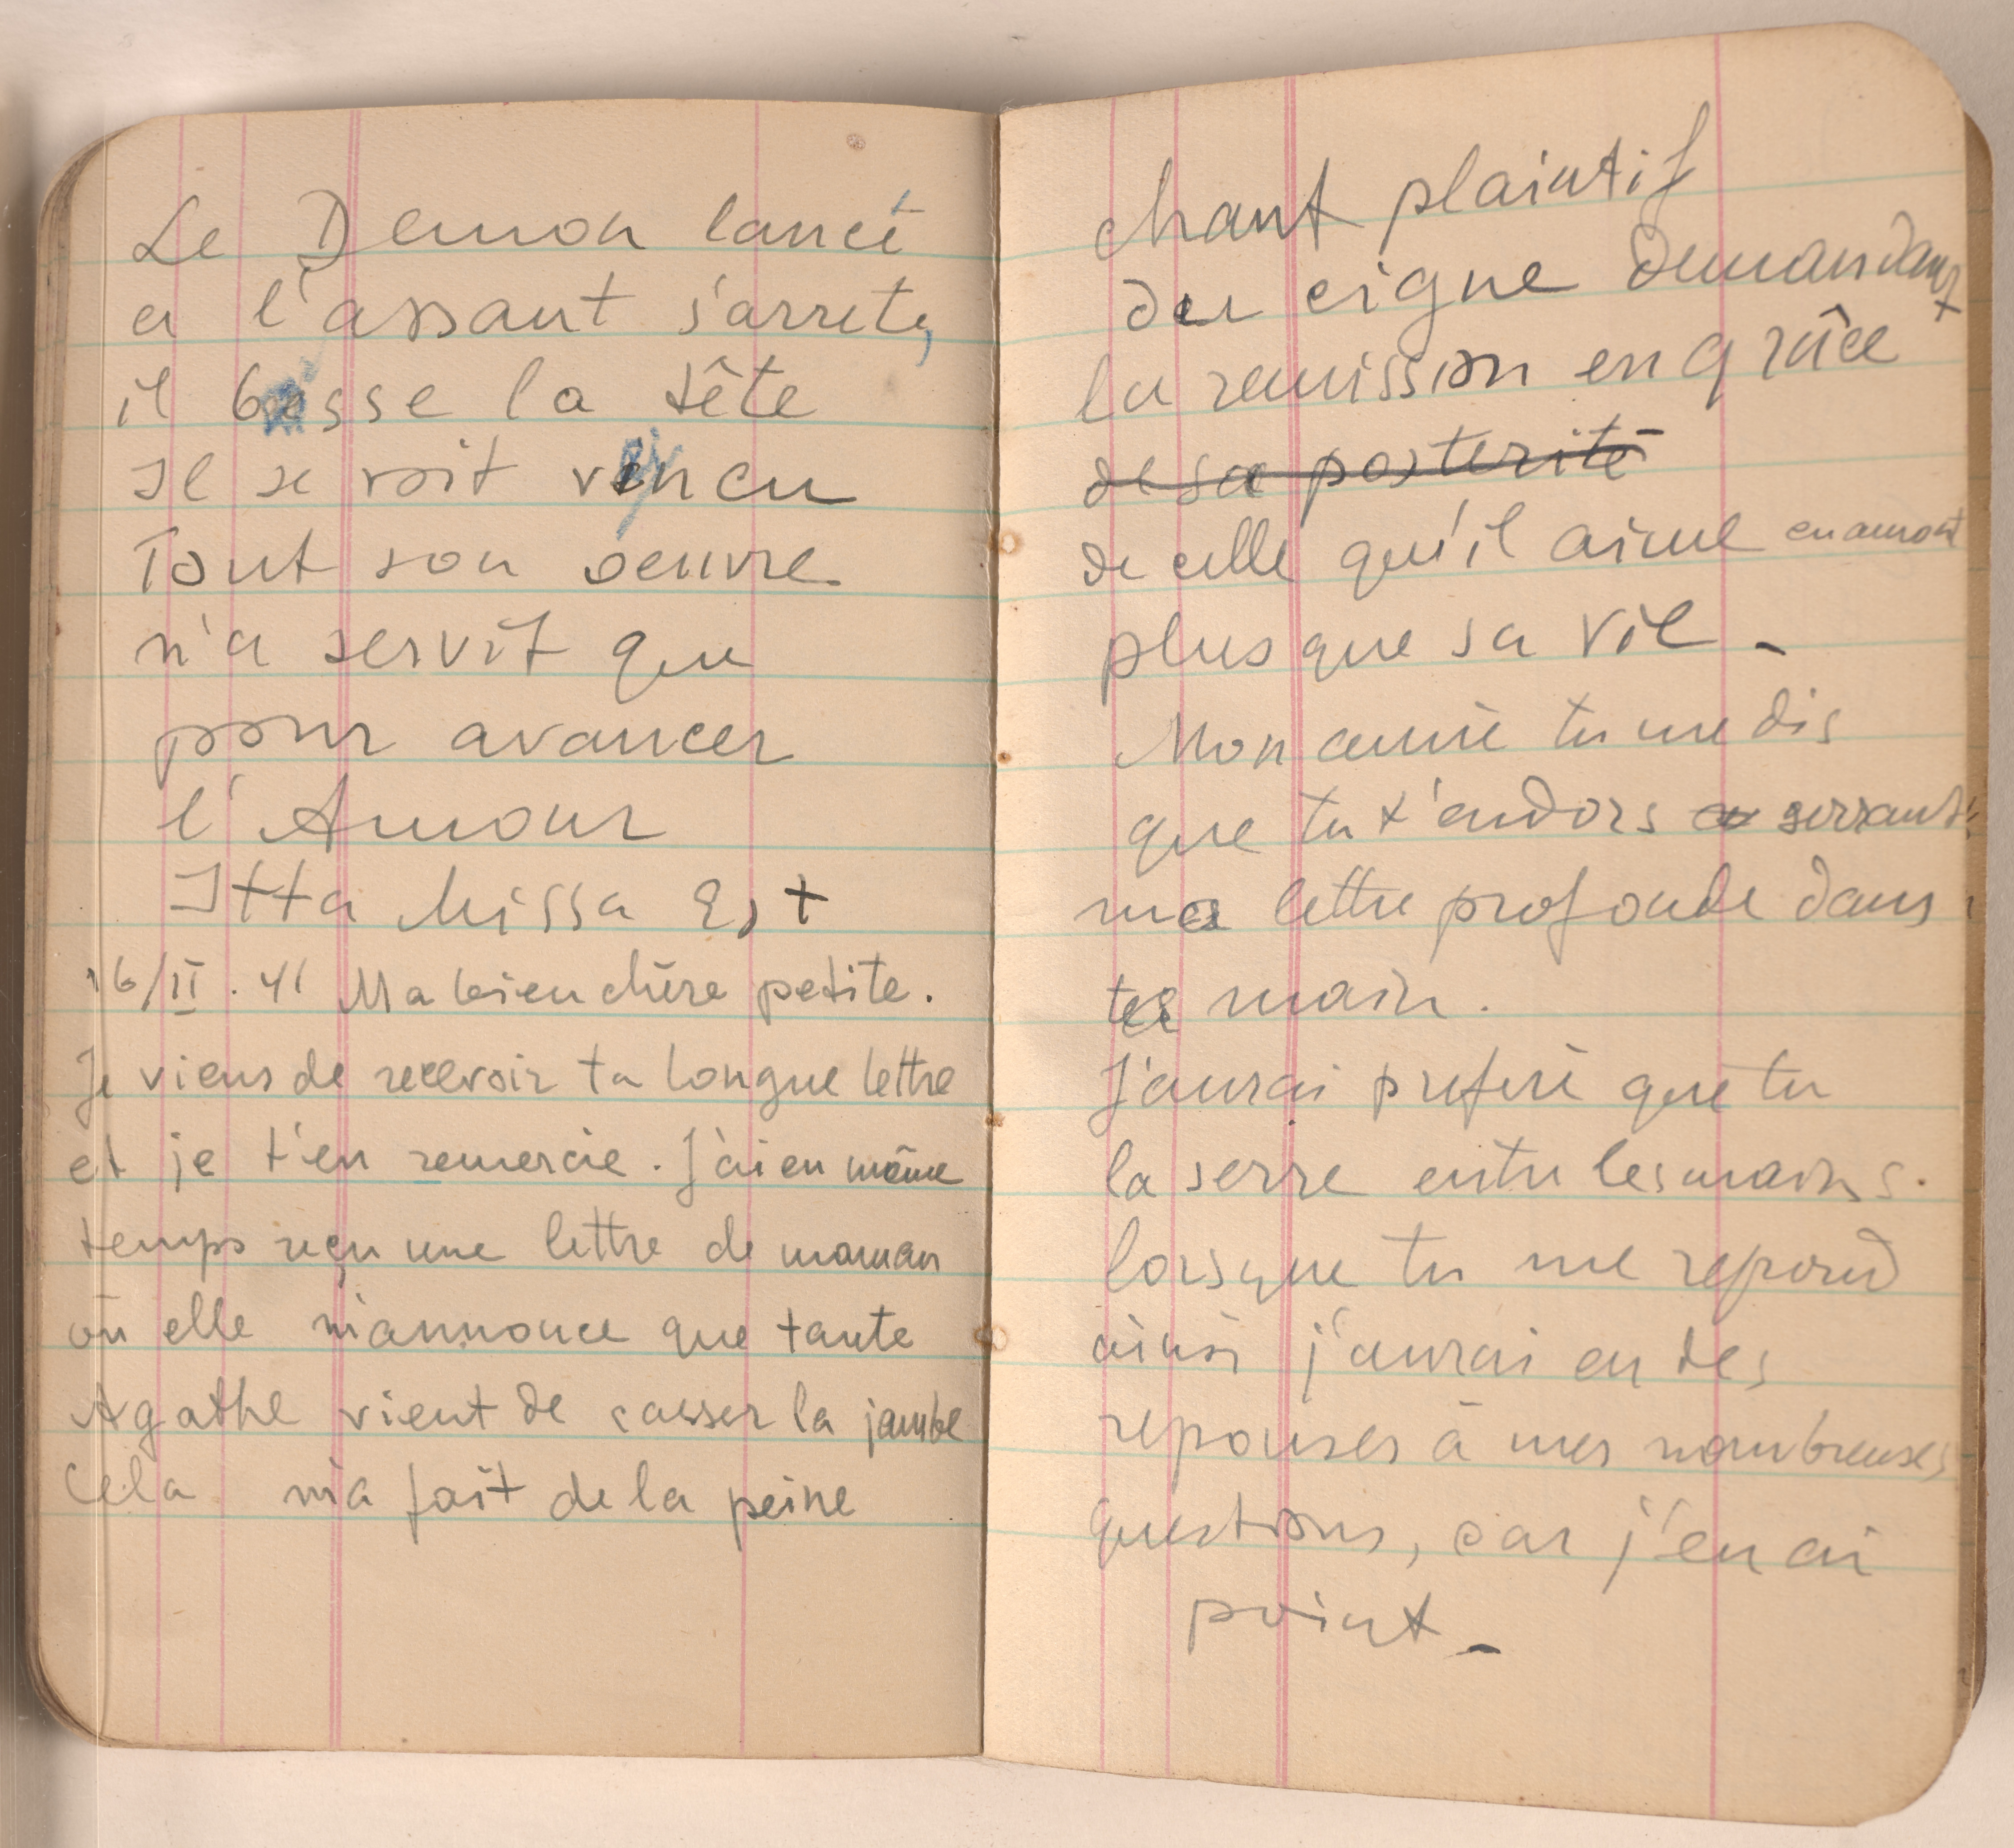 Le Demon lancé
a l'assaut s'arrete,
il baisse la tête
Il se voit vaincu
Tout son oeuvre
n'a servit que
pour avancer
l'Amour
Itta Missa Est
16/II. 41 Ma bien chère petite.
Je viens de recevoir ta longue lettre
et je t'en remercie. J'ai en même
temps reçu une lettre de maman
où elle m'annonce que tante
Agathe vient de casser la jambe
Cela m'a fait de la peine
chant plaintif
du cigne demandant
la remission en grâce
de sa posterité
de celle qu'il aime en amont
plus que sa vie -
Mon amie tu me dis
que tu t'endors serrant
ma lettre profonde dans
ta main.
J'aurai preferé que tu
la serre entre les mains.
lorsque tu me repond
ainsi j'aurai eu des
reponses à mes nombreuses
questions, car j'en ai
point -